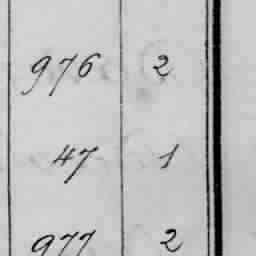 976 2
47 1
977 2